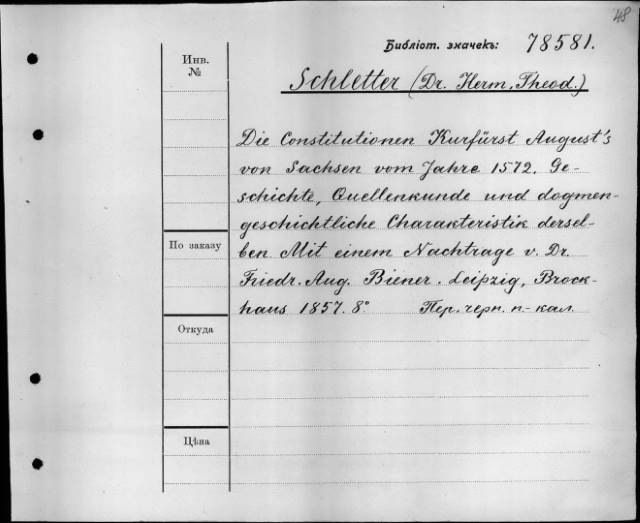 48
Библіот. значекъ: 78581.
Инв.
№
Schletter (Dr. Herm. Theod.)
Die Constitutionen Kurfürst August's
von Sachsen vom Jahre 1572. Ge-
schichte, Quellenkunde und dogmen-
geschichtliche Charakteristik dersel-
ben. Mit einem Nachtrage v. Dr.
Friedr. Aug. Biener. Leipzig, Brock-
haus 1857. 8° Пер. черн. п-кал.
По заказу
Откуда
Цѣна